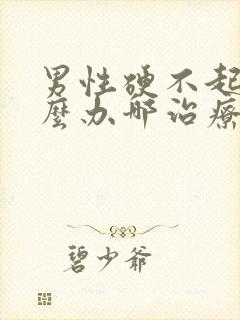 男性硬不起
麼办哪治療
碧少爷